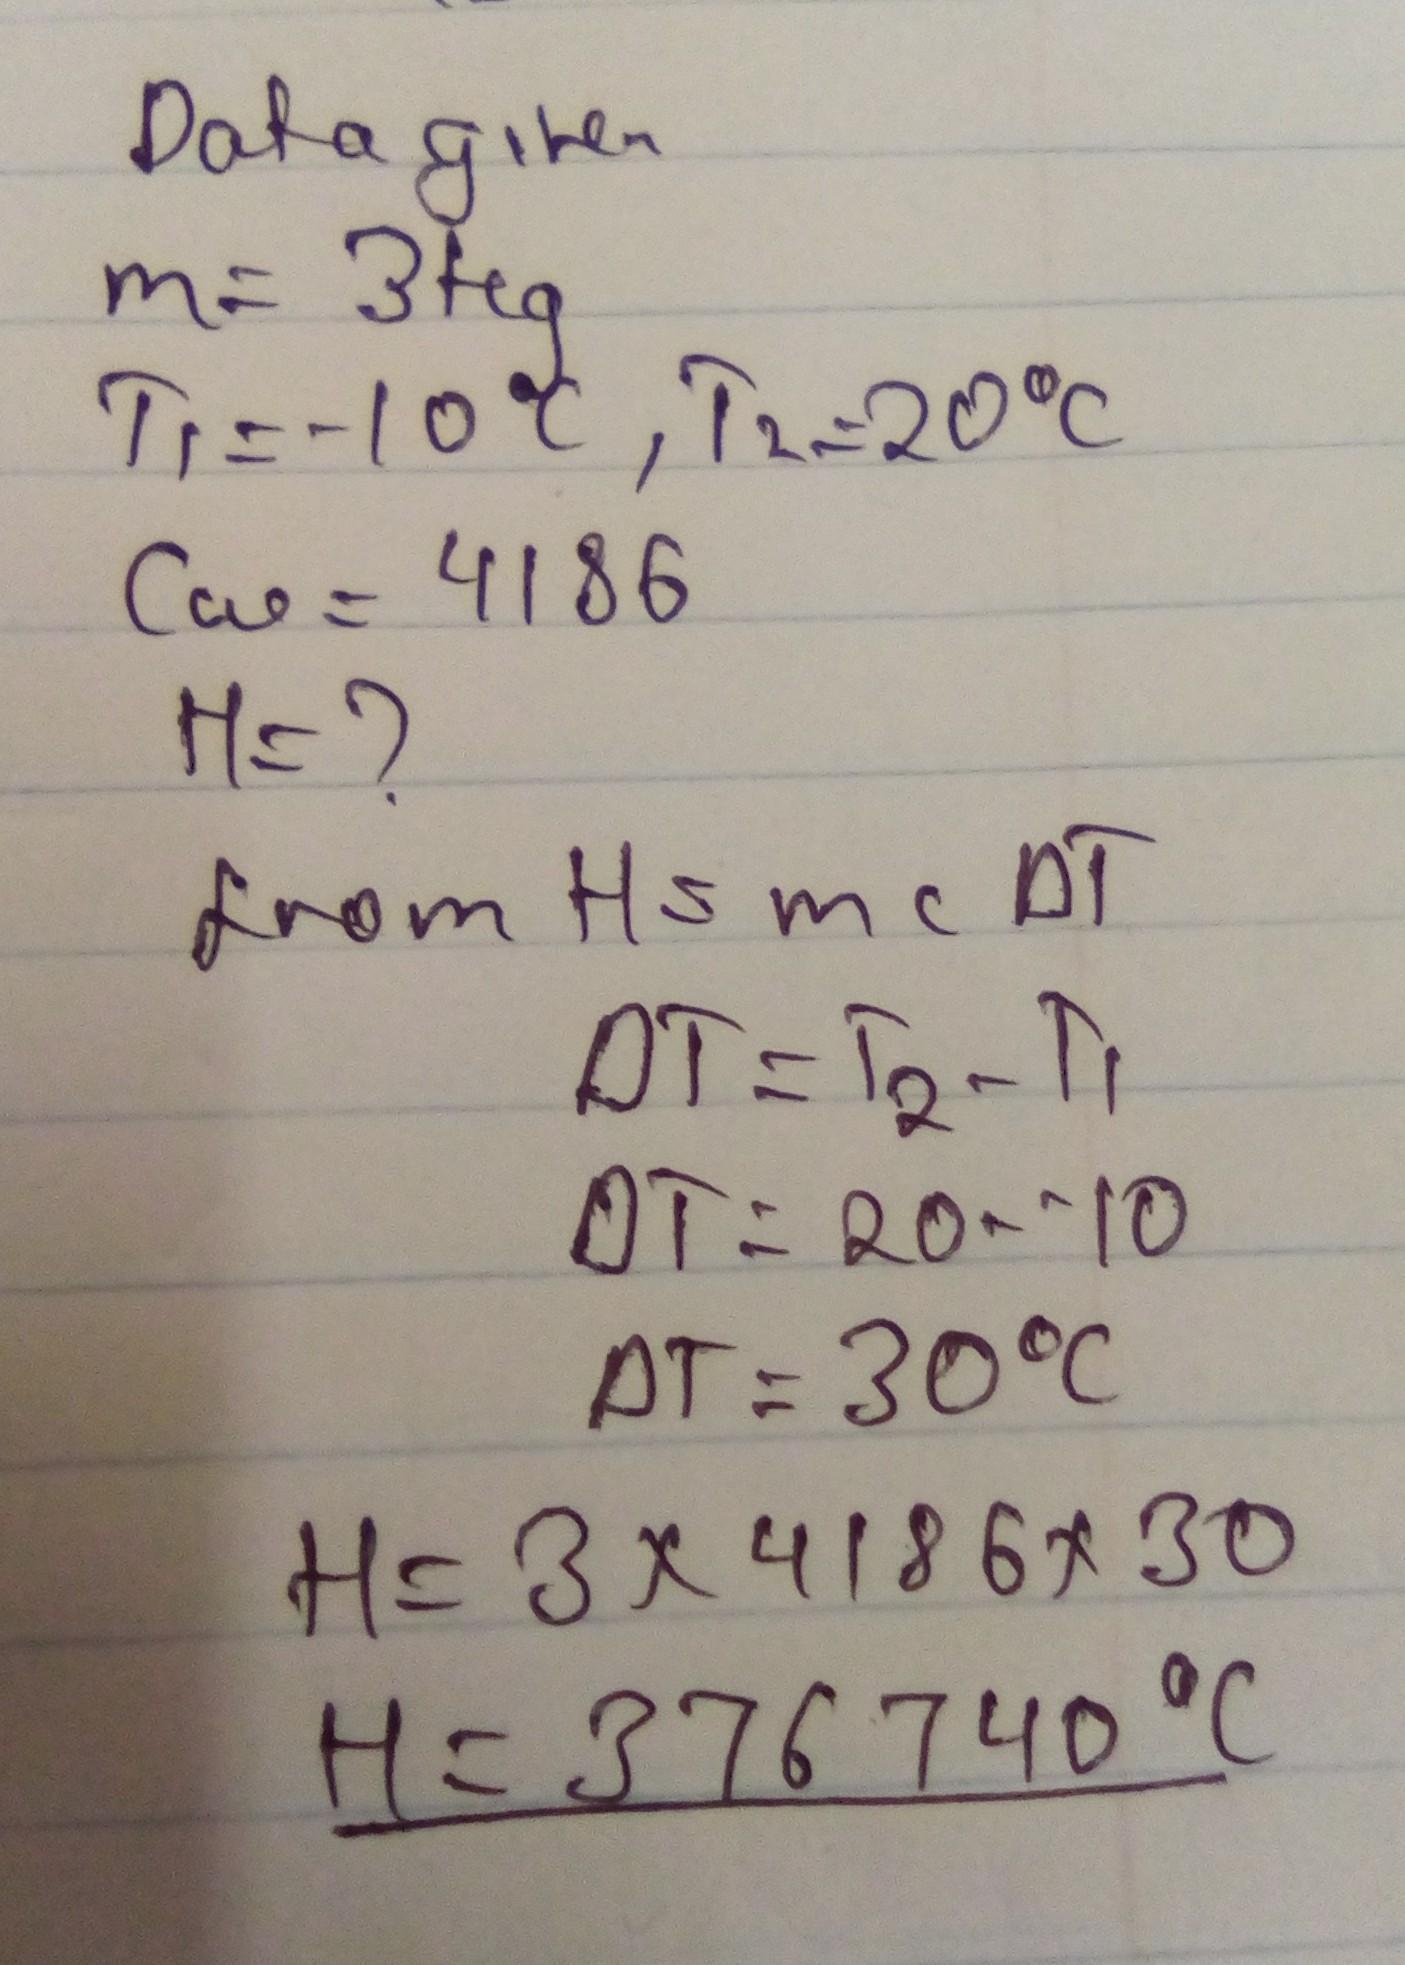 Data given
m = 3kg
T1 = -10°C, T2 = 20°C
Cw = 4186
H = ?
from H = mc DT
DT = T2 - T1
DT = 20 - -10
DT = 30°C
H = 3 x 4186 x 30
H = 376 740°C